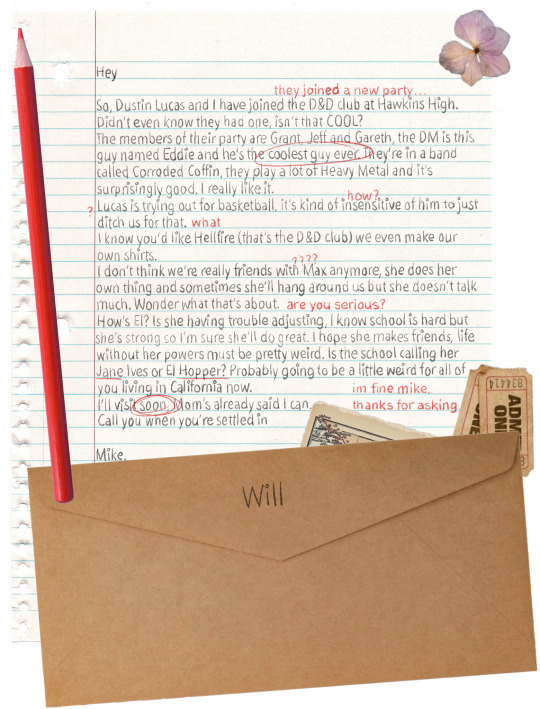 Hey
they joined a new party...
So, Dustin Lucas and I have joined the D&D club at Hawkins High.
Didn't even know they had one, isn't that COOL?
The members of their party are Grant, Jeff and Gareth, the DM is this
guy named Eddie and he's the coolest guy ever. They're in a band
called Corroded Coffin, they play a lot of Heavy Metal and it's
surprisingly good. I really like it.
how?
? Lucas is trying out for basketball, it's kind of insensitive of him to just
ditch us for that. what
I know you'd like Hellfire (that's the D&D club) we even make our
own shirts.
????
I don't think we're really friends with Max anymore, she does her
own thing and sometimes she'll hang around us but she doesn't talk
much. Wonder what that's about. are you serious?
How's El? Is she having trouble adjusting, I know school is hard but
she's strong so I'm sure she'll do great. I hope she makes friends, life
without her powers must be pretty weird. Is the school calling her
Jane Ives or El Hopper? Probably going to be a little weird for all of
you living in California now.
im fine mike,
I'll visit soon, Mom's already said I can.
thanks for asking
Call you when you're settled in
Mike.
834414
ADM
ON
Will